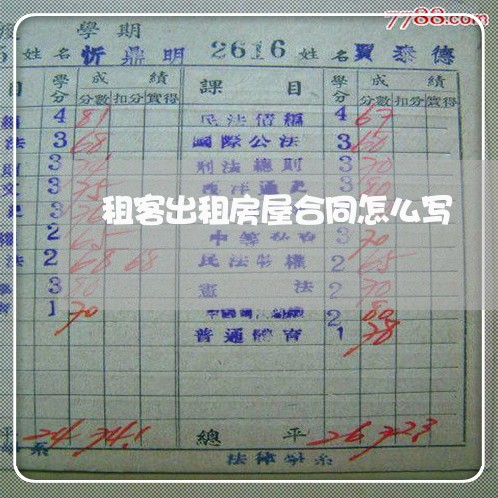 7788.com
學期
姓名 忻鼎明 2616 姓名 賈泰德
目 學分 成績 課目 學分 成績
分數 扣分 實得 分數 扣分 實得
4 81 民法債編 4 67
法 3 68 國際公法 3 60
3 刑法總則 3 70
3 75 西洋通史 3 80
租客出租房屋合同怎么写
2 65 3 70
法 2 68 68 民法物權 2 65
3 80 憲法 2 70
1 70 2 80
普通體育 1 78
平 24 74.1 總平 26 72.3
系 法律學系